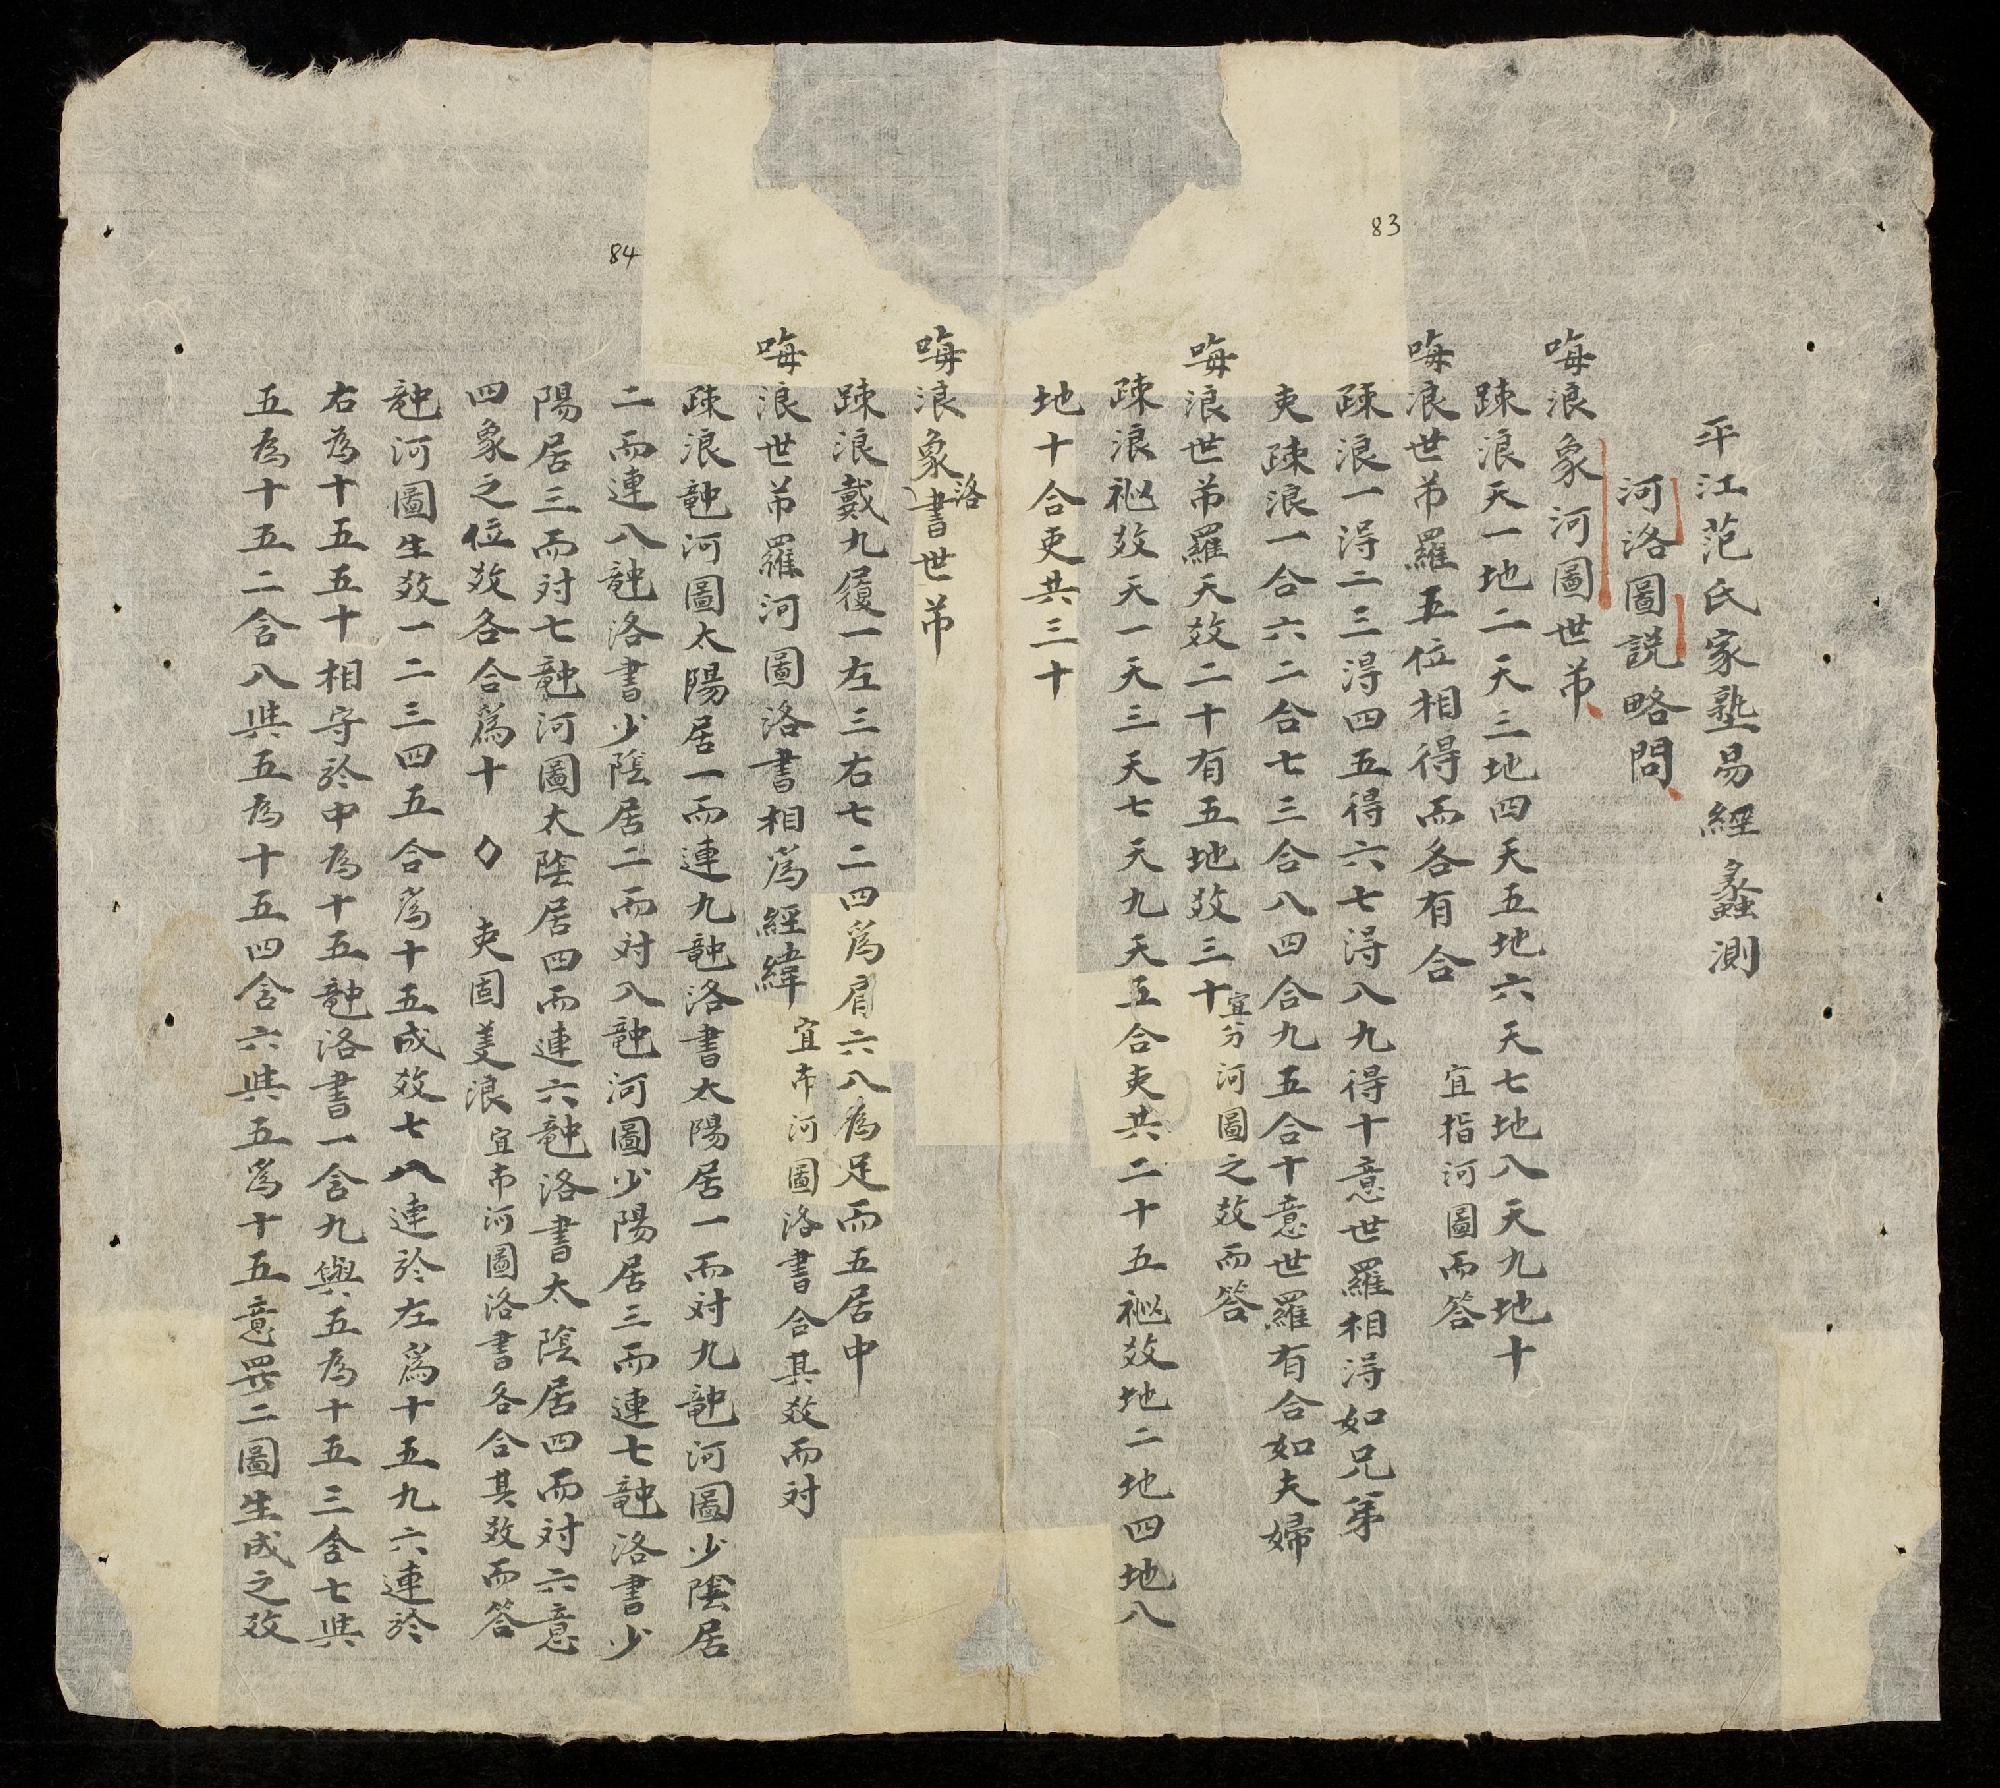 平江范氏家塾易經蠡測
河洛圖説略問
𠳨浪象河圖世芇
踈浪天一地二天三地四天五地六天七地八天九地十
𠳨浪世芇羅五位相得而各有合 宜指河圖而答
踈浪一得二三得四五得六七得八九得十意世羅相得如兄弟
吏踈浪一合六二合七三合八四合九五合十意世羅有合如夫婦
𠳨浪世芇羅天数二十有五地数三十宜分河圖之数而答
踈浪祂数天一天三天七天九天五合吏共二十五祂数地二地四地八
地十合吏共三十
𠳨浪象洛書世芇
踈浪戴九履一左三右七二四爲肩六八為足而五居中
𠳨浪世芇羅河圖洛書相爲經緯 宜芇河圖洛書合其数而对
踈浪𥪝河圖太陽居一而連九𥪝洛書太陽居一而对九𥪝河圖少陰居
二而連八𥪝洛書少陰居二而对八𥪝河圖少陽居三而連七𥪝洛書少
陽居三而对七𥪝河圖太陰居四而連六𥪝洛書太陰居四而对六意
四象之位数各合爲十 吏固羙浪 宜芇河圖洛書各合其数而答
𥪝河圖生数一二三四五合爲十五成数七八連於左爲十五九六連於
右為十五五十相守於中為十五𥪝洛書一含九與五為十五三含七與
五為十五二含八與五為十五四含六與五爲十五意𱺵二圖生成之数
83
84